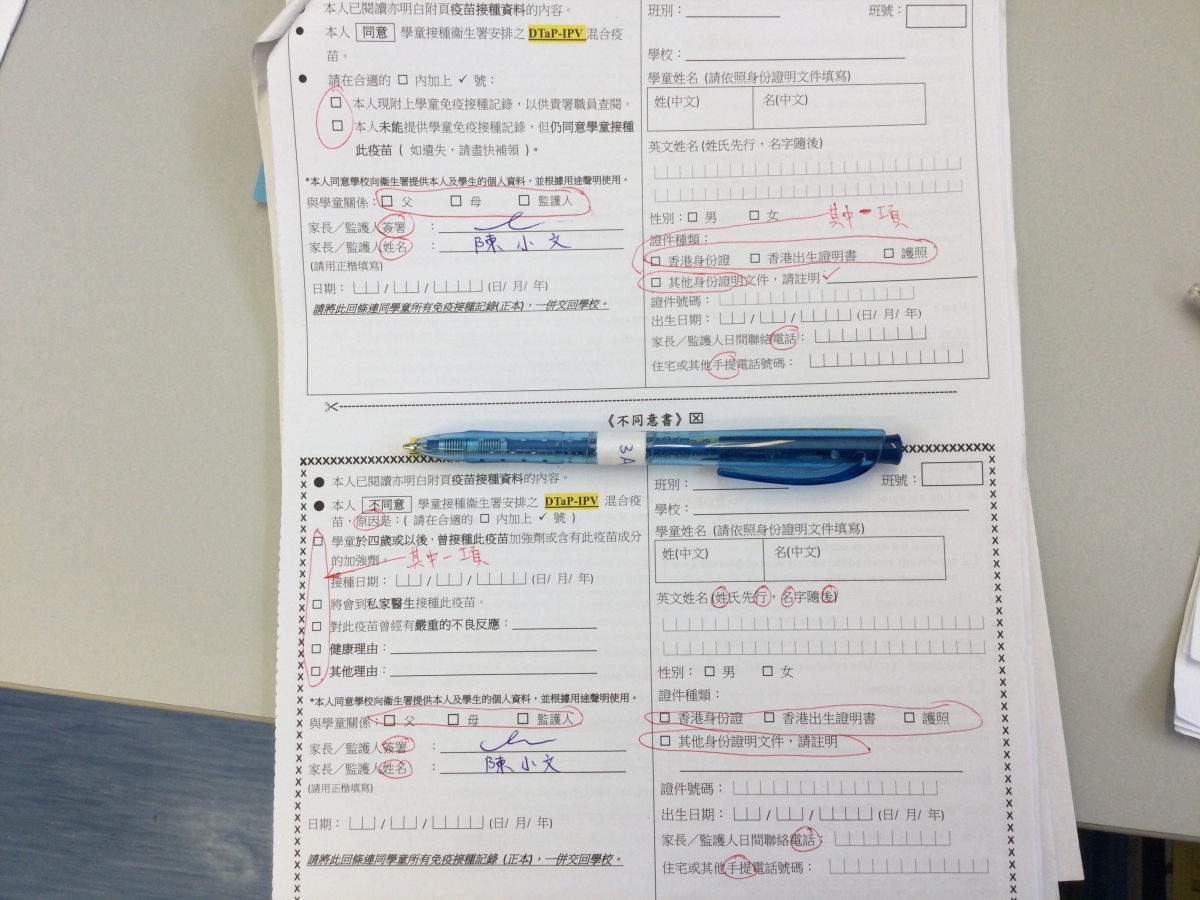 本人已閱讀亦明白附頁疫苗接種資料的內容。
● 本人 同意 學童接種衞生署安排之 DTaP-IPV 混合疫
苗。
● 請在合適的 □ 內加上 ✓ 號：
□ 本人現附上學童免疫接種記錄，以供貴署職員查閱。
□ 本人未能提供學童免疫接種記錄，但仍同意學童接種
此疫苗 ( 如遺失，請盡快補領 )。
*本人同意學校向衞生署提供本人及學生的個人資料，並根據用途聲明使用。
與學童關係：□ 父 □ 母 □ 監護人
家長／監護人簽署 ：
家長／監護人姓名 ： 陳小文
(請用正楷填寫)
日期： / / (日/ 月/ 年)
請將此回條連同學童所有免疫接種記錄(正本)，一併交回學校。
班別： 班號：
學校：
學童姓名 (請依照身份證明文件填寫)
姓(中文) 名(中文)
英文姓名 (姓氏先行，名字隨後)
性別：□ 男 □ 女 其中一項
證件種類：
□ 香港身份證 □ 香港出生證明書 □ 護照
□ 其他身份證明文件，請註明 ✓
證件號碼：
出生日期： / / (日/ 月/ 年)
家長／監護人日間聯絡電話：
住宅或其他手提電話號碼：
《不同意書》☒
3A
● 本人已閱讀亦明白附頁疫苗接種資料的內容。
● 本人 不同意 學童接種衞生署安排之 DTaP-IPV 混合疫
苗，原因是：( 請在合適的 □ 內加上 ✓ 號 )
□ 學童於四歲或以後，曾接種此疫苗加強劑或含有此疫苗成分
的加強劑。 其中一項
接種日期： / / (日/ 月/ 年)
□ 將會到私家醫生接種此疫苗。
□ 對此疫苗曾經有嚴重的不良反應：
□ 健康理由：
□ 其他理由：
*本人同意學校向衞生署提供本人及學生的個人資料，並根據用途聲明使用。
與學童關係：□ 父 □ 母 □ 監護人
家長／監護人簽署 ：
家長／監護人姓名 ： 陳小文
(請用正楷填寫)
日期： / / (日/ 月/ 年)
請將此回條連同學童所有免疫接種記錄 (正本)，一併交回學校。
班別： 班號：
學校：
學童姓名 (請依照身份證明文件填寫)
姓(中文) 名(中文)
英文姓名 (姓氏先行，名字隨後)
性別：□ 男 □ 女
證件種類：
□ 香港身份證 □ 香港出生證明書 □ 護照
□ 其他身份證明文件，請註明
證件號碼：
出生日期： / / (日/ 月/ 年)
家長／監護人日間聯絡電話：
住宅或其他手提電話號碼：